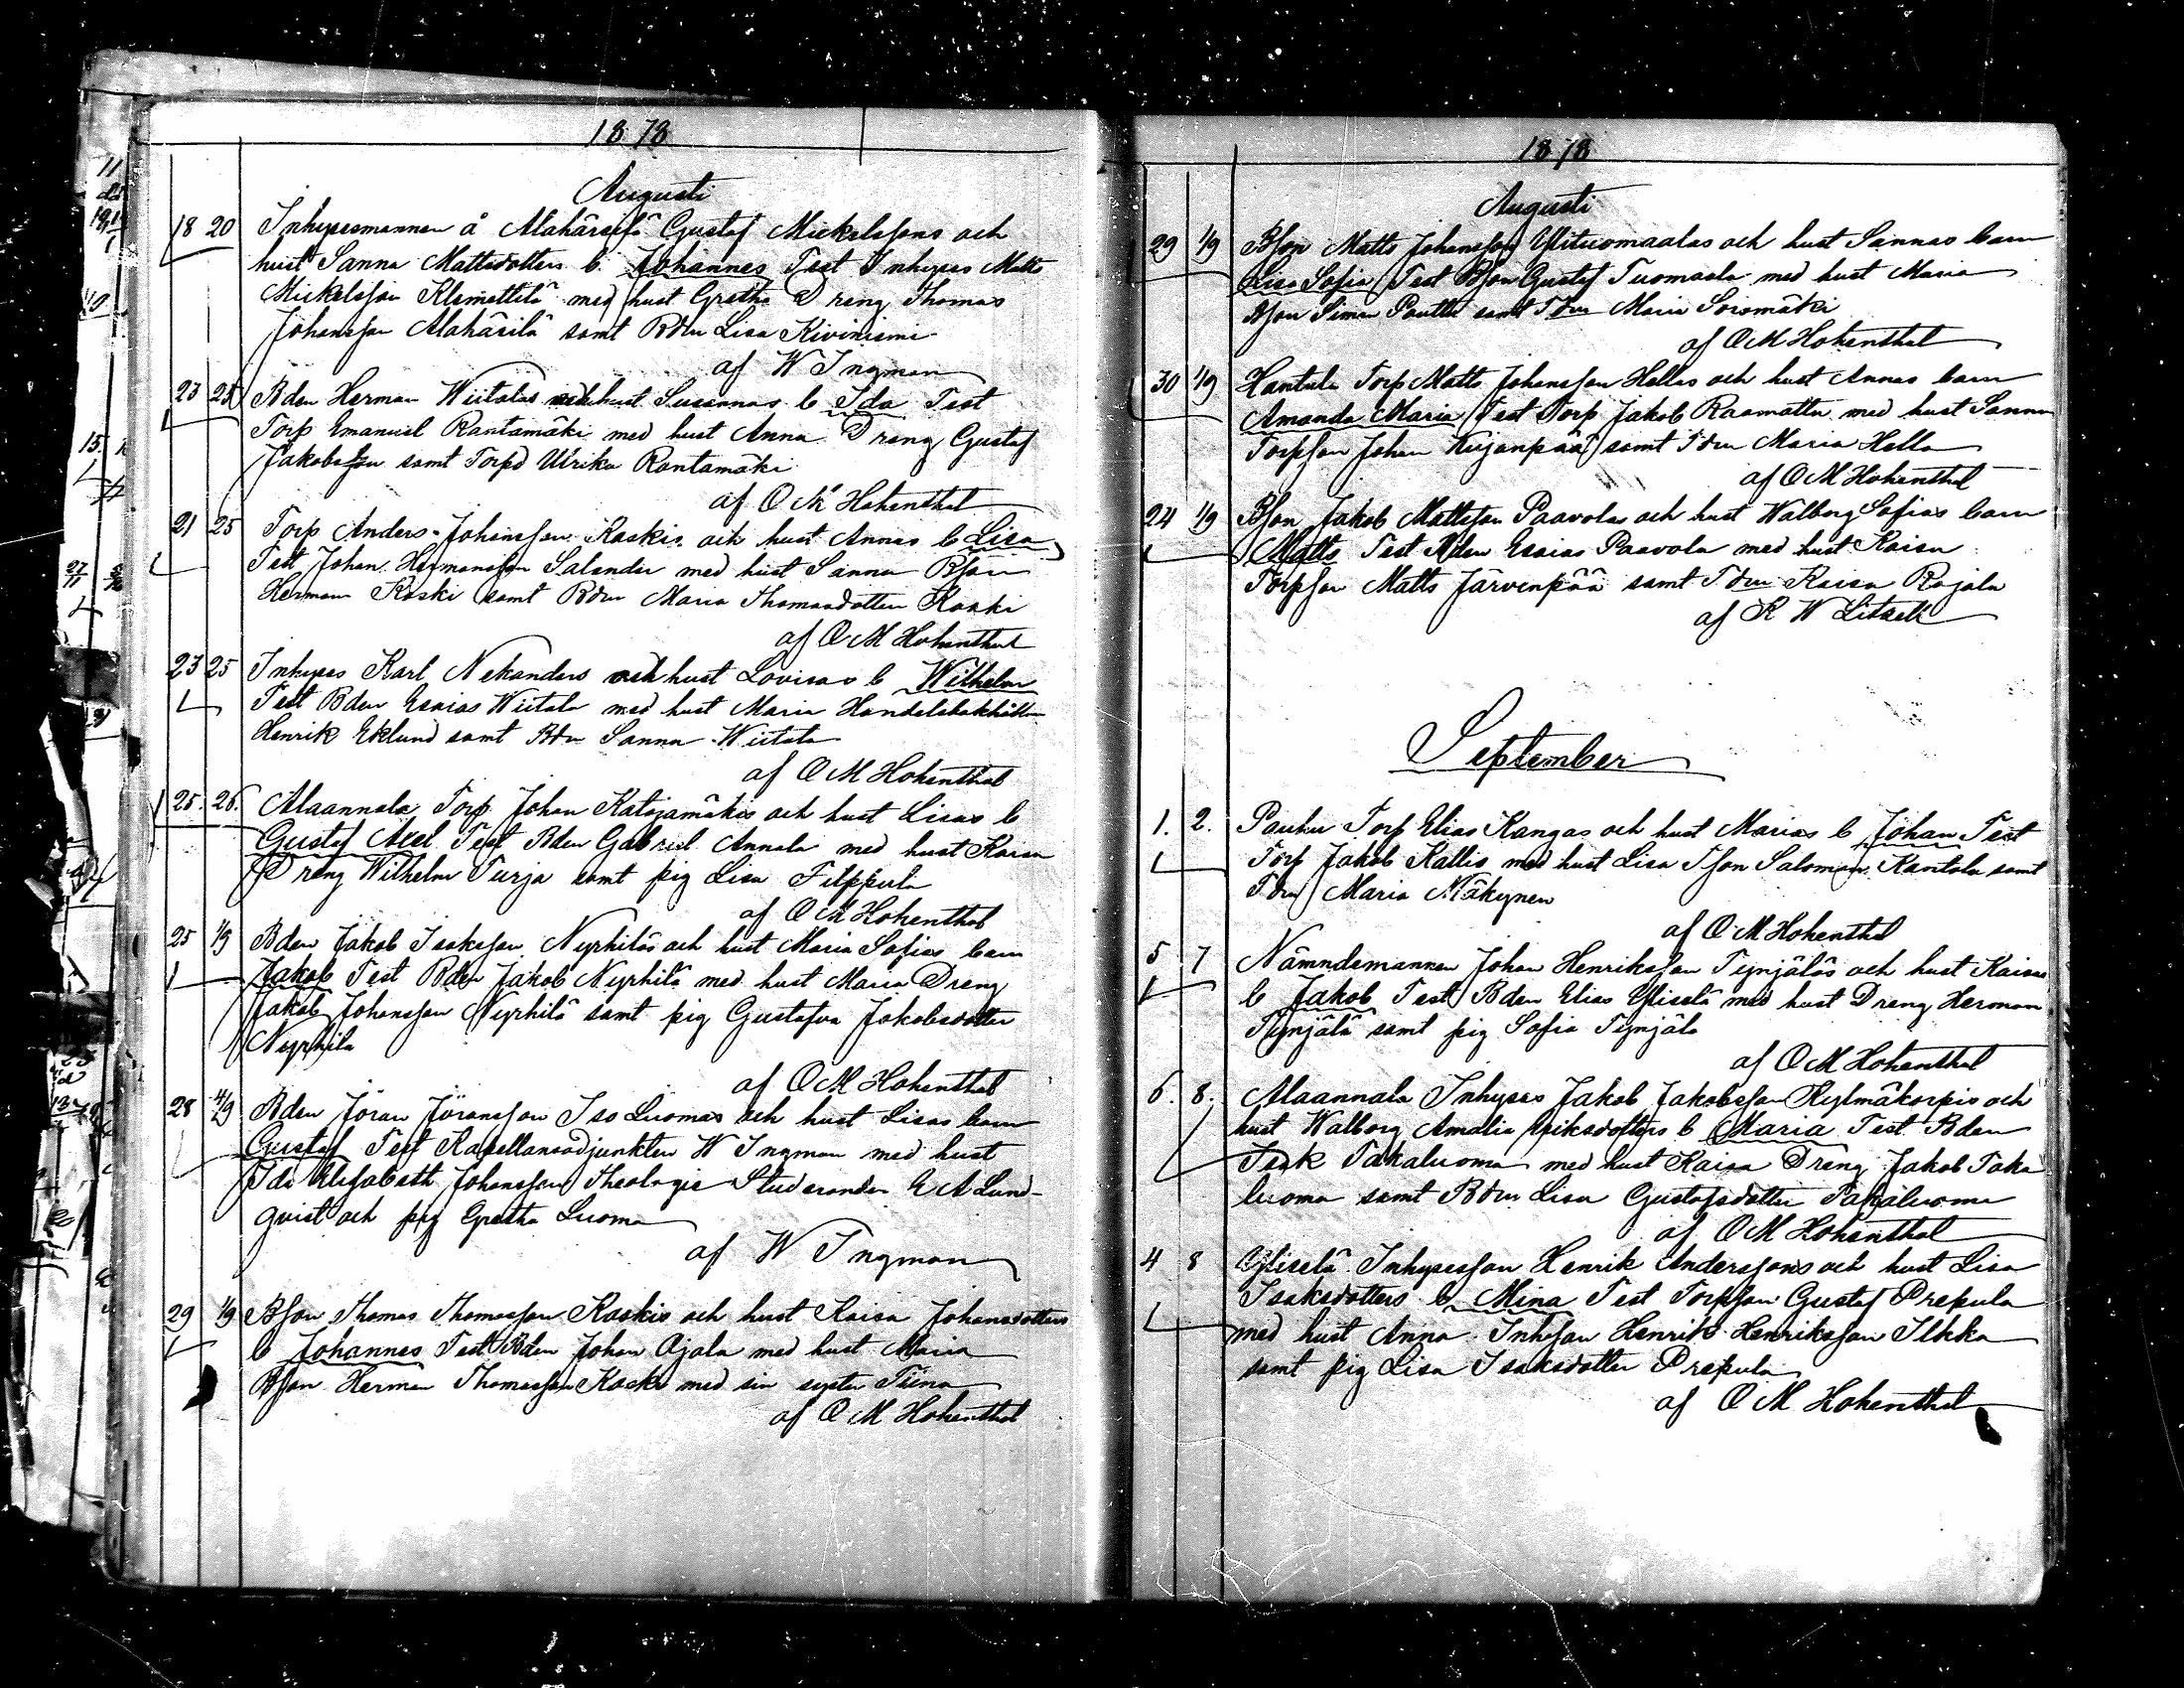 1878
Augusti
18 20 Inhysesmannen å Alahärsilä Gustaf Mickelssons och
hust Sanna Mattsdotters b. Johannes Test Inhyses Matts
Mickelsson Klemettilä med hust Gretha Dreng Thomas
Johansson Alahärsilä samt Bdtr Lisa Kiviniemi
af W Ingman
23 25 Bden Herman Wiitalas och hust Susannas b Ida Test
Torp Emanuel Rantamäki med hust Anna Dreng Gustaf
Jakobsson samt Torpd Ulrika Rantamäki
af O M Hohenthal
21 25 Torp Anders Johansson Koskis och hust Annas b Lisa
Test Johan Hermansson Salander med hust Sanna Bson
Herman Koski samt Bdtr Maria Thomasdotter Koski
af O M Hohenthal
23 25 Inhyses Karl Nekanders och hust Lovisas b Wilhelm
Test Bden Esaias Wiitala med hust Maria
Henrik Eklund samt Bdtr Sanna Wiitala
af O M Hohenthal
25. 26. Alaannala Torp Johan Katajamäkis och hust Lisas b
Gustaf Axel Test Bden Gabriel Annala med hust Kaisa
Dreng Wilhelm Turja samt pig Lisa Filppula
af O M Hohenthal
25 1/9 Bden Jakob Isaksson Nyrhiläs och hust Maria Sofias barn
Jakob Test Bden Jakob Nyrhilä med hust Maria Dreng
Jakob Johansson Nyrhilä samt pig Gustafva Jakobsdotter
Nyrhilä
af O M Hohenthal
28 4/9 Bden Jöran Jöransson Iso Luomas och hust Lisas barn
Gustaf Test Kapellansadjunkten W Ingman med hust
Ida Elisabeth Johansson Theologie Studeranden E A Lund-
qvist och pig Gretha Luoma
af W Ingman
29 1/9 Bson Thomas Thomasson Koskis och hust Kaisa Johansdotters
b Johannes Test Bden Johan Ojala med hust Maria
Bson Herman Thomasson Koski med sin syster Tiina
af O M Hohenthal
1878
Augusti
29 1/9 Bson Matts Johansson Ylituomaalas och hust Sannas barn
Lisa Sofia Test Bson Gustaf Tuomaala med hust Maria
Bson Simon Panttu samt Tdtr Maria Soromäki
af O M Hohenthal
30 1/9 Hantula Torp Matts Johansson Hellas och hust Annas barn
Amanda Maria Test Torp Jakob Raamattu med hust Sanna
Torpson Johan Kujanpää samt Tdtr Maria Hella
af O M Hohenthal
24 1/9 Bson Jakob Mattsson Paavolas och hust Walborg Sofias barn
Matts Test Bden Esaias Paavola med hust Kaisa
Torpson Matts Järvenpää samt Tdtr Kaisa Rajala
af K W Litzell
September
1. 2. Pouhu Torp Elias Kangas och hust Marias b Johan Test
Torp Jakob Kallis med hust Lisa Tson Salomon Kantola samt
Tdtr Maria Mäkynen
af O M Hohenthal
5 7 Nämndemannen Johan Henriksson Tynjäläs och hust Kaisas
b Jakob Test Bden Elias Yliselä med hust Dreng Herman
Tynjälä samt pig Sofia Tynjälä
af O M Hohenthal
6. 8. Alaannala Inhyses Jakob Jakobsson Kylmäkorpis och
hust Walborg Amalia Eriksdotters b Maria Test Bden
Isak Takaluoma med hust Kaisa Dreng Jakob Taka
luoma samt Bdtr Lisa Gustafsdotter Takaluoma
af O M Hohenthal
4 8 Yliselä Inhysesson Henrik Anderssons och hust Lisa
Isaksdotters b Mina Test Torpson Gustaf Prepula
med hust Anna Inhson Henrik Henriksson Ilkka
samt pig Lisa Isaksdotter Prepula
af O M Hohenthal